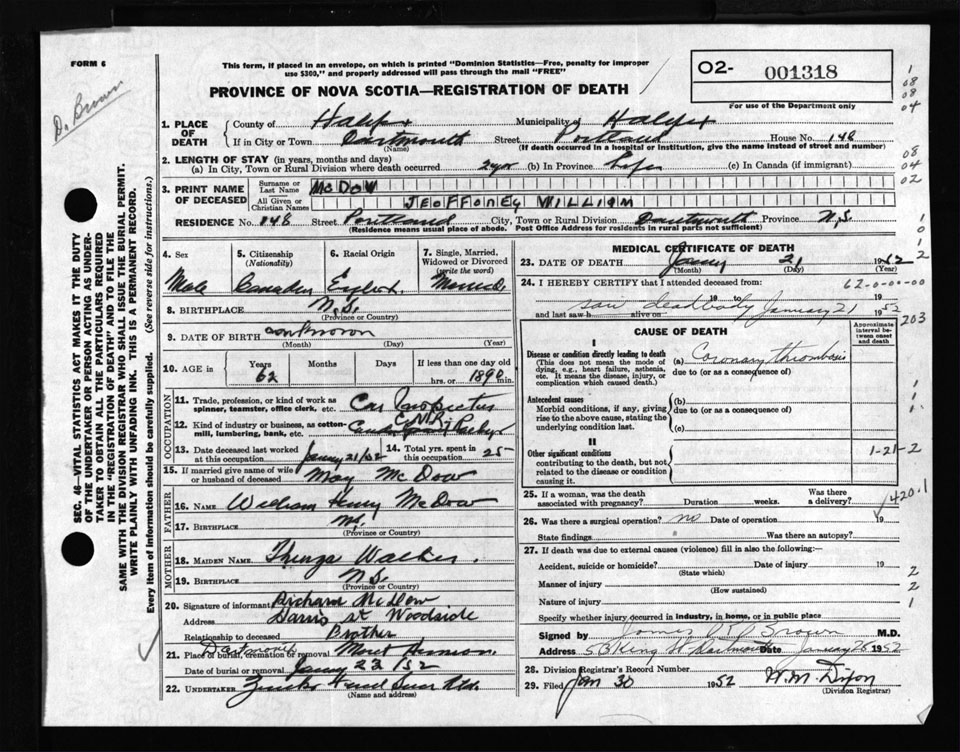 FORM 6
This form, if placed in an envelope, on which is printed "Dominion Statistics—Free, penalty for improper
use $300," and properly addressed will pass through the mail "FREE"
PROVINCE OF NOVA SCOTIA—REGISTRATION OF DEATH
O2- 001318
For use of the Department only
D. Brown
1. PLACE OF DEATH
County of Halifax Municipality of Halifax
If in City or Town Dartmouth Street Portland House No. 148
(Name) (If death occurred in a hospital or institution, give the name instead of street and number)
2. LENGTH OF STAY (in years, months and days)
(a) In City, Town or Rural Division where death occurred 2 yrs (b) In Province Life (c) In Canada (if immigrant)
3. PRINT NAME OF DECEASED
Surname or Last Name McDOW
All Given or Christian Names JEOFFONEY WILLIAM
RESIDENCE No. 148 Street Portland City, Town or Rural Division Dartmouth Province N.S.
(Residence means usual place of abode. Post Office Address for residents in rural parts not sufficient)
4. Sex Male
5. Citizenship (Nationality) Canadian
6. Racial Origin English
7. Single, Married, Widowed or Divorced (write the word) Married
8. BIRTHPLACE N.S.
(Province or Country)
9. DATE OF BIRTH unknown
(Month) (Day) (Year)
10. AGE in Years 62 Months Days If less than one day old hrs. or 1890 min.
OCCUPATION
11. Trade, profession or kind of work as spinner, teamster, office clerk, etc. Car Inspector
12. Kind of industry or business, as cotton-mill, lumbering, bank, etc. C.N.R.
13. Date deceased last worked at this occupation Janny 21/52
14. Total yrs. spent in this occupation 25
15. If married give name of wife or husband of deceased May McDow
FATHER
16. NAME William Henry McDow
17. BIRTHPLACE N.S.
MOTHER
18. MAIDEN NAME Thirza Walker
19. BIRTHPLACE N.S.
(Province or Country)
20. Signature of informant Richard McDow
Address St Woodside
Relationship to deceased Brother
21. Place of burial, cremation or removal Dartmouth Mount Hermon
Date of burial or removal Janny 23/52
22. UNDERTAKER
(Name and address)
MEDICAL CERTIFICATE OF DEATH
23. DATE OF DEATH Janny 21 1952
(Month) (Day) (Year)
24. I HEREBY CERTIFY that I attended deceased from:
62-0-00-00
19 to 19
and last saw h alive on saw dead body January 21 1952
CAUSE OF DEATH
Approximate interval between onset and death
I
Disease or condition directly leading to death
(This does not mean the mode of dying, e.g., heart failure, asthenia, etc. It means the disease, injury, or complication which caused death.)
(a) Coronary thrombosis
due to (or as a consequence of)
Antecedent causes
Morbid conditions, if any, giving rise to the above cause, stating the underlying condition last.
(b)
due to (or as a consequence of)
(c)
II
Other significant conditions
contributing to the death, but not related to the disease or condition causing it.
1-21-2
25. If a woman, was the death associated with pregnancy? Duration weeks. Was there a delivery?
420.1
26. Was there a surgical operation? no Date of operation 19
State findings Was there an autopsy?
27. If death was due to external causes (violence) fill in also the following:—
Accident, suicide or homicide? Date of injury 19
(State which)
Manner of injury
(How sustained)
Nature of injury
Specify whether injury occurred in industry, in home, or in public place
Signed by Brown M.D.
Address 53 King St Dartmouth Date January 25 1952
28. Division Registrar's Record Number
29. Filed Jan 30 1952 W.M. Dixon
(Division Registrar)
SEC. 46—VITAL STATISTICS ACT MAKES IT THE DUTY
OF THE UNDERTAKER OR PERSON ACTING AS UNDER-
TAKER TO OBTAIN ALL THE PARTICULARS REQUIRED
IN THE "REGISTRATION OF DEATH" AND TO FILE THE
SAME WITH THE DIVISION REGISTRAR WHO SHALL ISSUE THE BURIAL PERMIT.
WRITE PLAINLY WITH UNFADING INK. THIS IS A PERMANENT RECORD.
Every item of information should be carefully supplied. (See reverse side for instructions.)
1
08
08
04
08
04
02
1
0
1
2
203
1
1
1
2
2
1